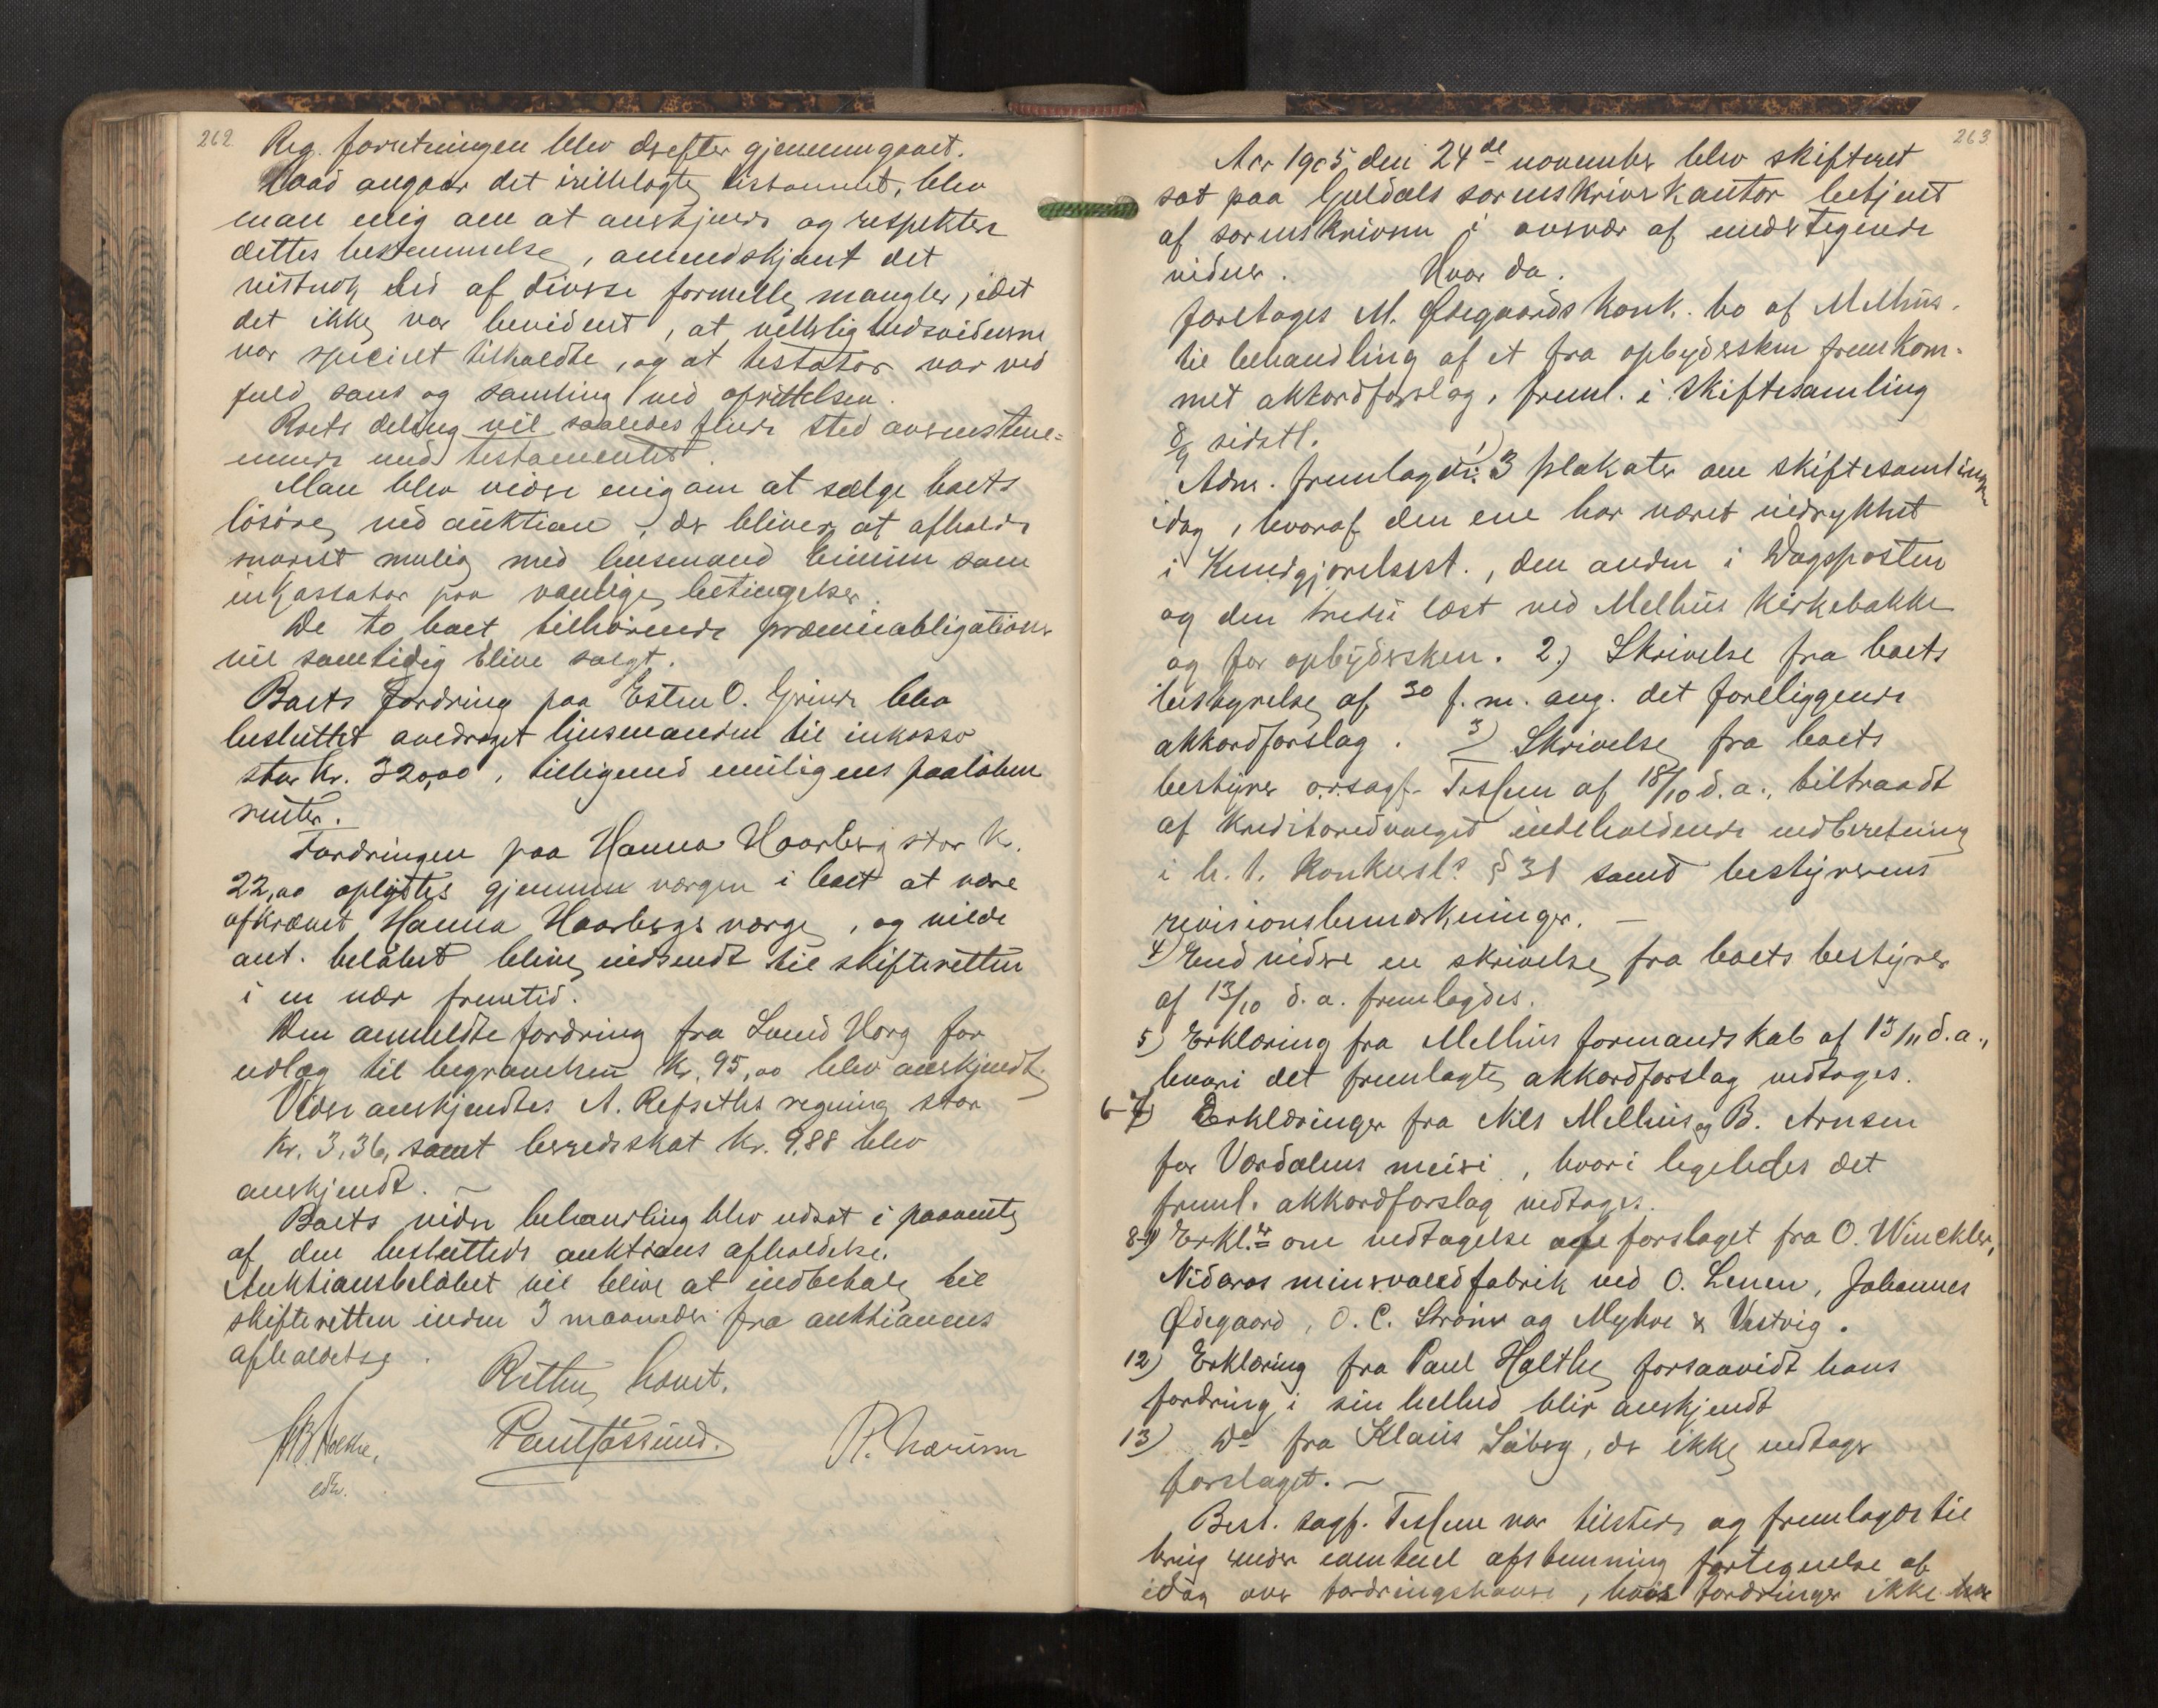 262.
Reg. forretningen blev derefter gjennemgaaet.
Hvad angaar det irettelagte testamnet, blev
man enig om at anerkjende og respektere
dettes bestemmelse, omendskjønt det
vistnok led af diverse formelle mangler, idet
det ikke var bevidnet, at vitterlighedsvidnerne
var specielt tilkaldte, og at testator var ved
fuld sans og samling ved oprettelsen.
Boets deling vil saaledes finde sted overenstem-
mende med testamentet.
Man blev videre enig om at sælge boets
løsøre ved auktion, der bliver at afholde
snarest mulig med lensmand som
inkassator paa vanlige betingelser.
De to boet tilhørende præmieobligationer
vil samtidig blive solgt.
Boets fordring paa Esten O. Grinde blev
besluttet overdraget lensmanden til inkasso
stor Kr. 32,00, tilligemed muligens paaløbne
renter.
Fordringen paa Hanna Haarberg stor Kr.
22,00 oplystes gjennem værgen i boet at være
afkrævet Hanna Haarbergs værge, og vilde
ant. beløbet blive indsendt til skifteretten
i en nær fremtid.
Den anmeldte fordring fra Lund Horg for
udlæg til begravelsen Kr. 95,00 blev anerkjendt.
Videre anerkjendtes A. Refseths regning stor
Kr. 3,36, samt herredsskat Kr. 9,88 blev
anerkjendt. –
Boets videre behandling blev udsat i paavente
af den besluttede auktions afholdelse.
Auktionsbeløbet vil blive at indbetale til
skifteretten inden 3 maaneder fra auktionens
afholdelse.
Retten hævet.
263
Aar 1905 den 24de november blev skifteret
sat paa Guldals sorenskriverkontor betjent
af sorenskriveren i overvær af undertegnede
vidner. Hvor da.
foretoges M. Ødegaards konk. bo af Melhus.
til behandling af et fra opbydersken fremkom-
met akkordforslag, freml. i skiftesamling
8/9 sidstl.
Adm. fremlagde: 1) 3 plakater om skiftesamlingen
idag, hvoraf den ene har været indrykket
i Kundgjørelsest., den anden i Dagsposten
og den tredie læst ved Melhus kirkebakke
og for opbydersken. 2) Skrivelse fra boets
bestyrelse af 30 f.m. ang. det foreliggende
akkordforslag. 3) Skrivelse fra boets
bestyrer o.r.sagf. Tessem af 18/10 d.a., tiltraadt
af kreditorudvalget indeholdende indberetning
i h. t. konkursl.s § 31 samt bestyrerens
revisionsbemærkninger. –
4) End videre en skrivelse fra boets bestyrer
af 13/10 d.a. fremlagdes.
5) Erklæring fra Melhus formandskab af 13/11 d.a.,
hvori det fremlagte akkordforslag vedtoges.
6-7) Erklæringer fra Nils Melhus og B. Arnsen
for Værdalens meieri, hvori ligeledes det
freml. akkordforslag vedtoges.
8-11) Erkl. om vedtagelse af forslaget fra O. Winckler,
Nidaros mineralvandfabrik ved O. Lenen, Johannes
Ødegaard, O. C. Strøm og Myhre & Vestvig.
12) Erklæring fra Paul Holthe forsaavidt hans
fordring i sin helhed blir anerkjendt
13) Do fra Klaus Søberg, der ikke vedtager
forslaget. –
Best. sagf. Tessem var tilstede og fremlagde til
brug under eventuel afstemning fortegnelse af
idag over fordringshavere, hvis fordringer ikke